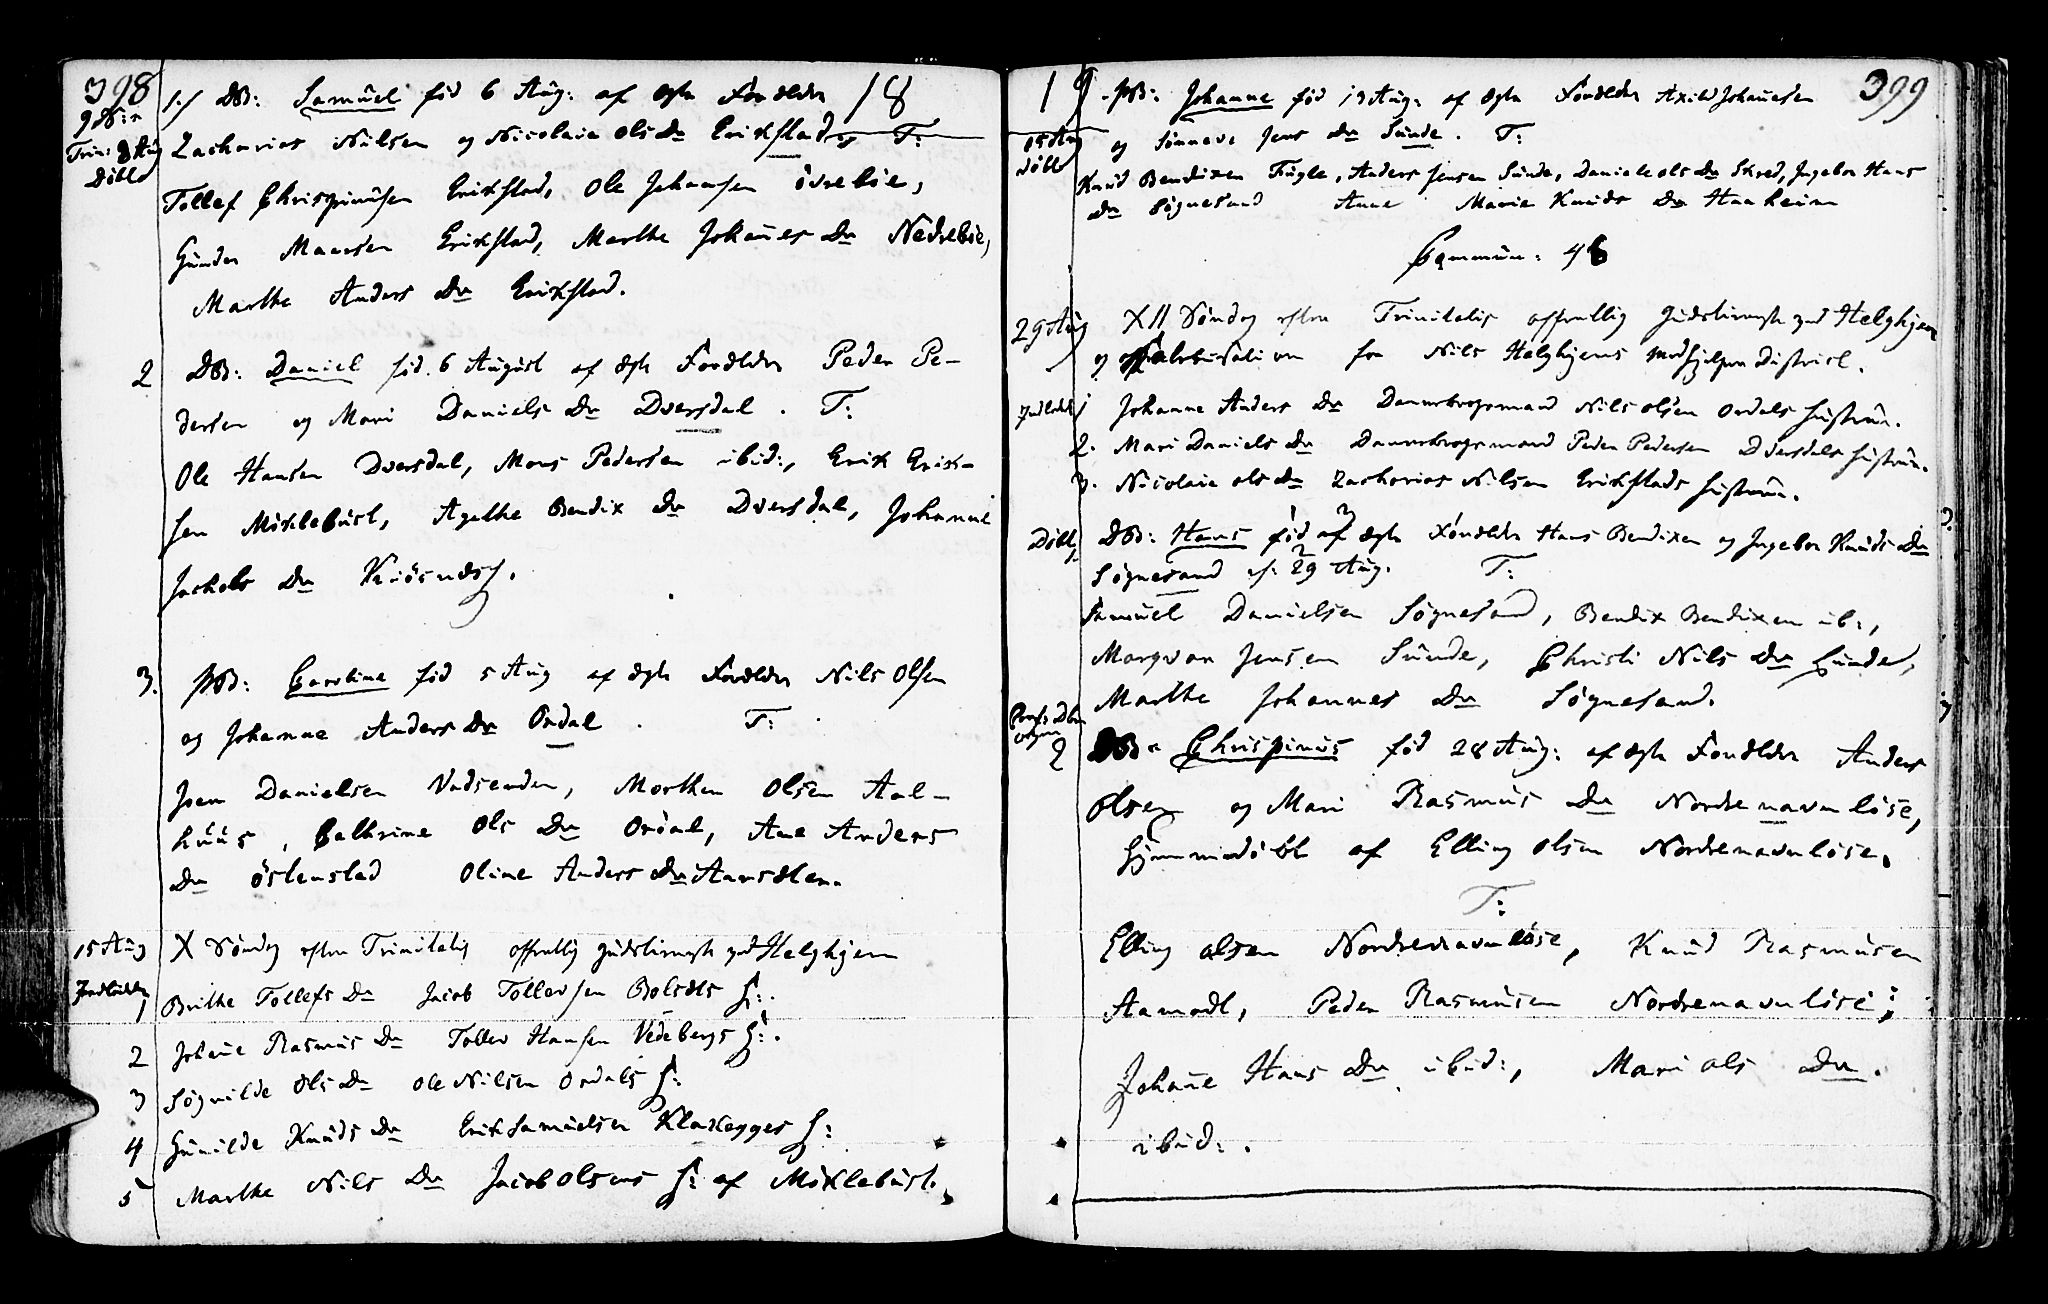 398
9de S: p
Trin: 8 Aug
Døbt
1./ DB: Samuel fød 6 Aug: af ægte Forældre 18
Zacharias Nilsen og Nicolaia Ols Dr Erikstad T:
Tollef Chrispinusen Erikstad, Ole Johansen Övreböe,
Gunder Monsen Erikstad, Marthe Johañes Dr Nedreböe,
Marthe Anders Dr Erikstad.
2 DB: Daniel fød 6 August af ægte Forældre Peder Pe-
dersen og Mari Daniels Dr Dversdal. T:
Ole Hansen Dversdal, Mons Pedersen ibid:, Erik Erik-
sen Möklebust, Agethe Bendix Dr Dversdal, Johanne
Jachobs Dr Kiösnæs.
3. PB: Caroline fød 5 Aug af ægte Forældre Nils Olsen
og Johanne Anders Dr Ordal. T:
Joen Danielsen Vadsenden, Morthen Olsen Aal-
huus, Cathrine Ols Dr Ordal, Ane Anders
Dr Östenstad Oline Anders Dr Aarsæten.
15 Aug X Söndag efter Trinitatis offentlig Gudstieneste ved Helghjem
Indledede
1 Brithe Tollefs Dr Jacob Tollevsen Bolsæts H:.
2 Johañe Rasmus Dr Tollev Hansen Vedebergs H:.
3 Sögnilde Ols Dr Ole Nilsen Ordals H:
4 Gunilde Knuds Dr Erik Samuelsen Klakegges H:
5 Marthe Nils Dr Jacob Olsens H: af Möklebust.
19. PB: Johanne fød 13 Aug: af ægte Forældre Axild Johanesen 399
15 Aug
döbt
og Sönneve Jens Dr Sunde. T:
Knud Bendixen Fugle, Anders Jensen Sunde, Daniele Ols Dr Skred, Ingebor Hans
Dr Sögnesand Anne Marie Knuds Dr Haaheim
Commun: 48
29 Aug XII Söndag efter Trinitatis offentlig Gudstieneste ved Helghjem
og for Nils Helghjems Medhjelper District.
Indledet 1 Johanne Anders Dr Dannebrogsmand Nils Olsen Ordals Hustrue.
2. Mari Daniels Dr Dannebrogsmand Peder Pedersen Dversdals Hustrue.
3. Nicolaia Ols Dr Zacharias Nilsen Erikstads Hustrue.
Döbt, DB: Hans fød af ægte Forældre Hans Bendixen og Ingebor Knuds Dr
Sögnesand 29 Aug. T:
Samuel Danielsen Sögnesand, Bendix Bendixen ib:,
Margvar Jensen Sunde, Christi Nils Dr Sunde,
Marthe Johannes Dr Sögnesand.
2 DB: Chrispinus fød 28 Aug: af ægte Forældre Anders
Olsen og Mari Rasmus Dr Nordrenavnlöse,
Hjemmedöbt af Elling Olsen Nordrenavnlöse.
T:
Elling Olsen Nordrenavnlöse, Knud Rasmusen
Aamodt, Peder Rasmusen Nordrenavnlöse;
Johañe Hans Dr ibid:, Mari Ols Dr.
ibid:.